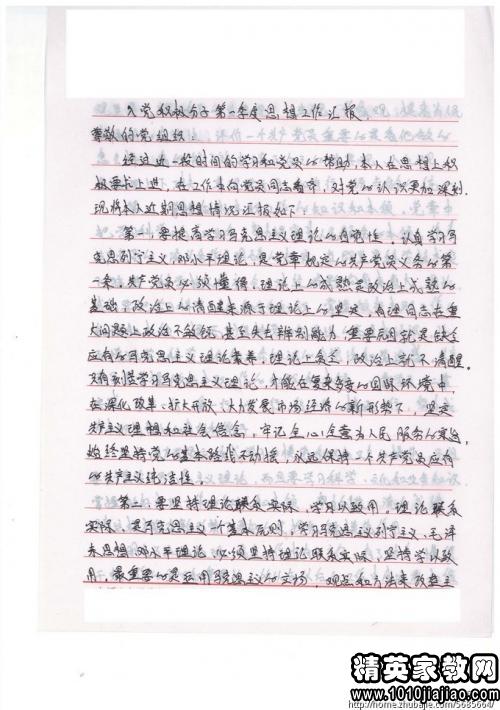 入党积极分子第一季度思想工作汇报
尊敬的党组织
经过近一段时间的学习和党员的帮助，本人在思想上积
极要求上进，在工作中向党员同志看齐，对党的认识更加深刻.
现将本人近期思想情况汇报如下
第一，要提高学习马克思主义理论的自觉性，认真学习马
克思列宁主义、邓小平理论，是党章规定的共产党员义务的第
一条，共产党员必须懂得，理论上的成熟是政治上成熟的
基础，政治上的清醒来源于理论上的坚定，有些同志在重
大问题上政治不敏锐，甚至失去辨别能力，重要原因就是缺乏
应有的马克思主义理论素养，理论上贫乏，政治上就不清醒。
只有刻苦学习马克思主义理论，才能在复杂多变的国际环境中，
在深化改革、扩大开放、大力发展市场经济的新形势下，坚定
共产主义理想和社会信念，牢记全心全意为人民服务的宗旨，
始终坚持党的基本路线不动摇，永远保持一个共产党员应有
的共产主义纯洁性
第二，要坚持理论联系实际，学习以致用，理论联系
实际，是马克思主义一个基本原则，学习马克思主义列宁主义、毛泽
东思想、邓小平理论，必须坚持理论联系实际，坚持学以致
用，最重要的是运用马克思主义的立场，观点和方法来改造主
精英家教网
www.1010jiajiao.com
http://home.zhubajie.com/5685664/